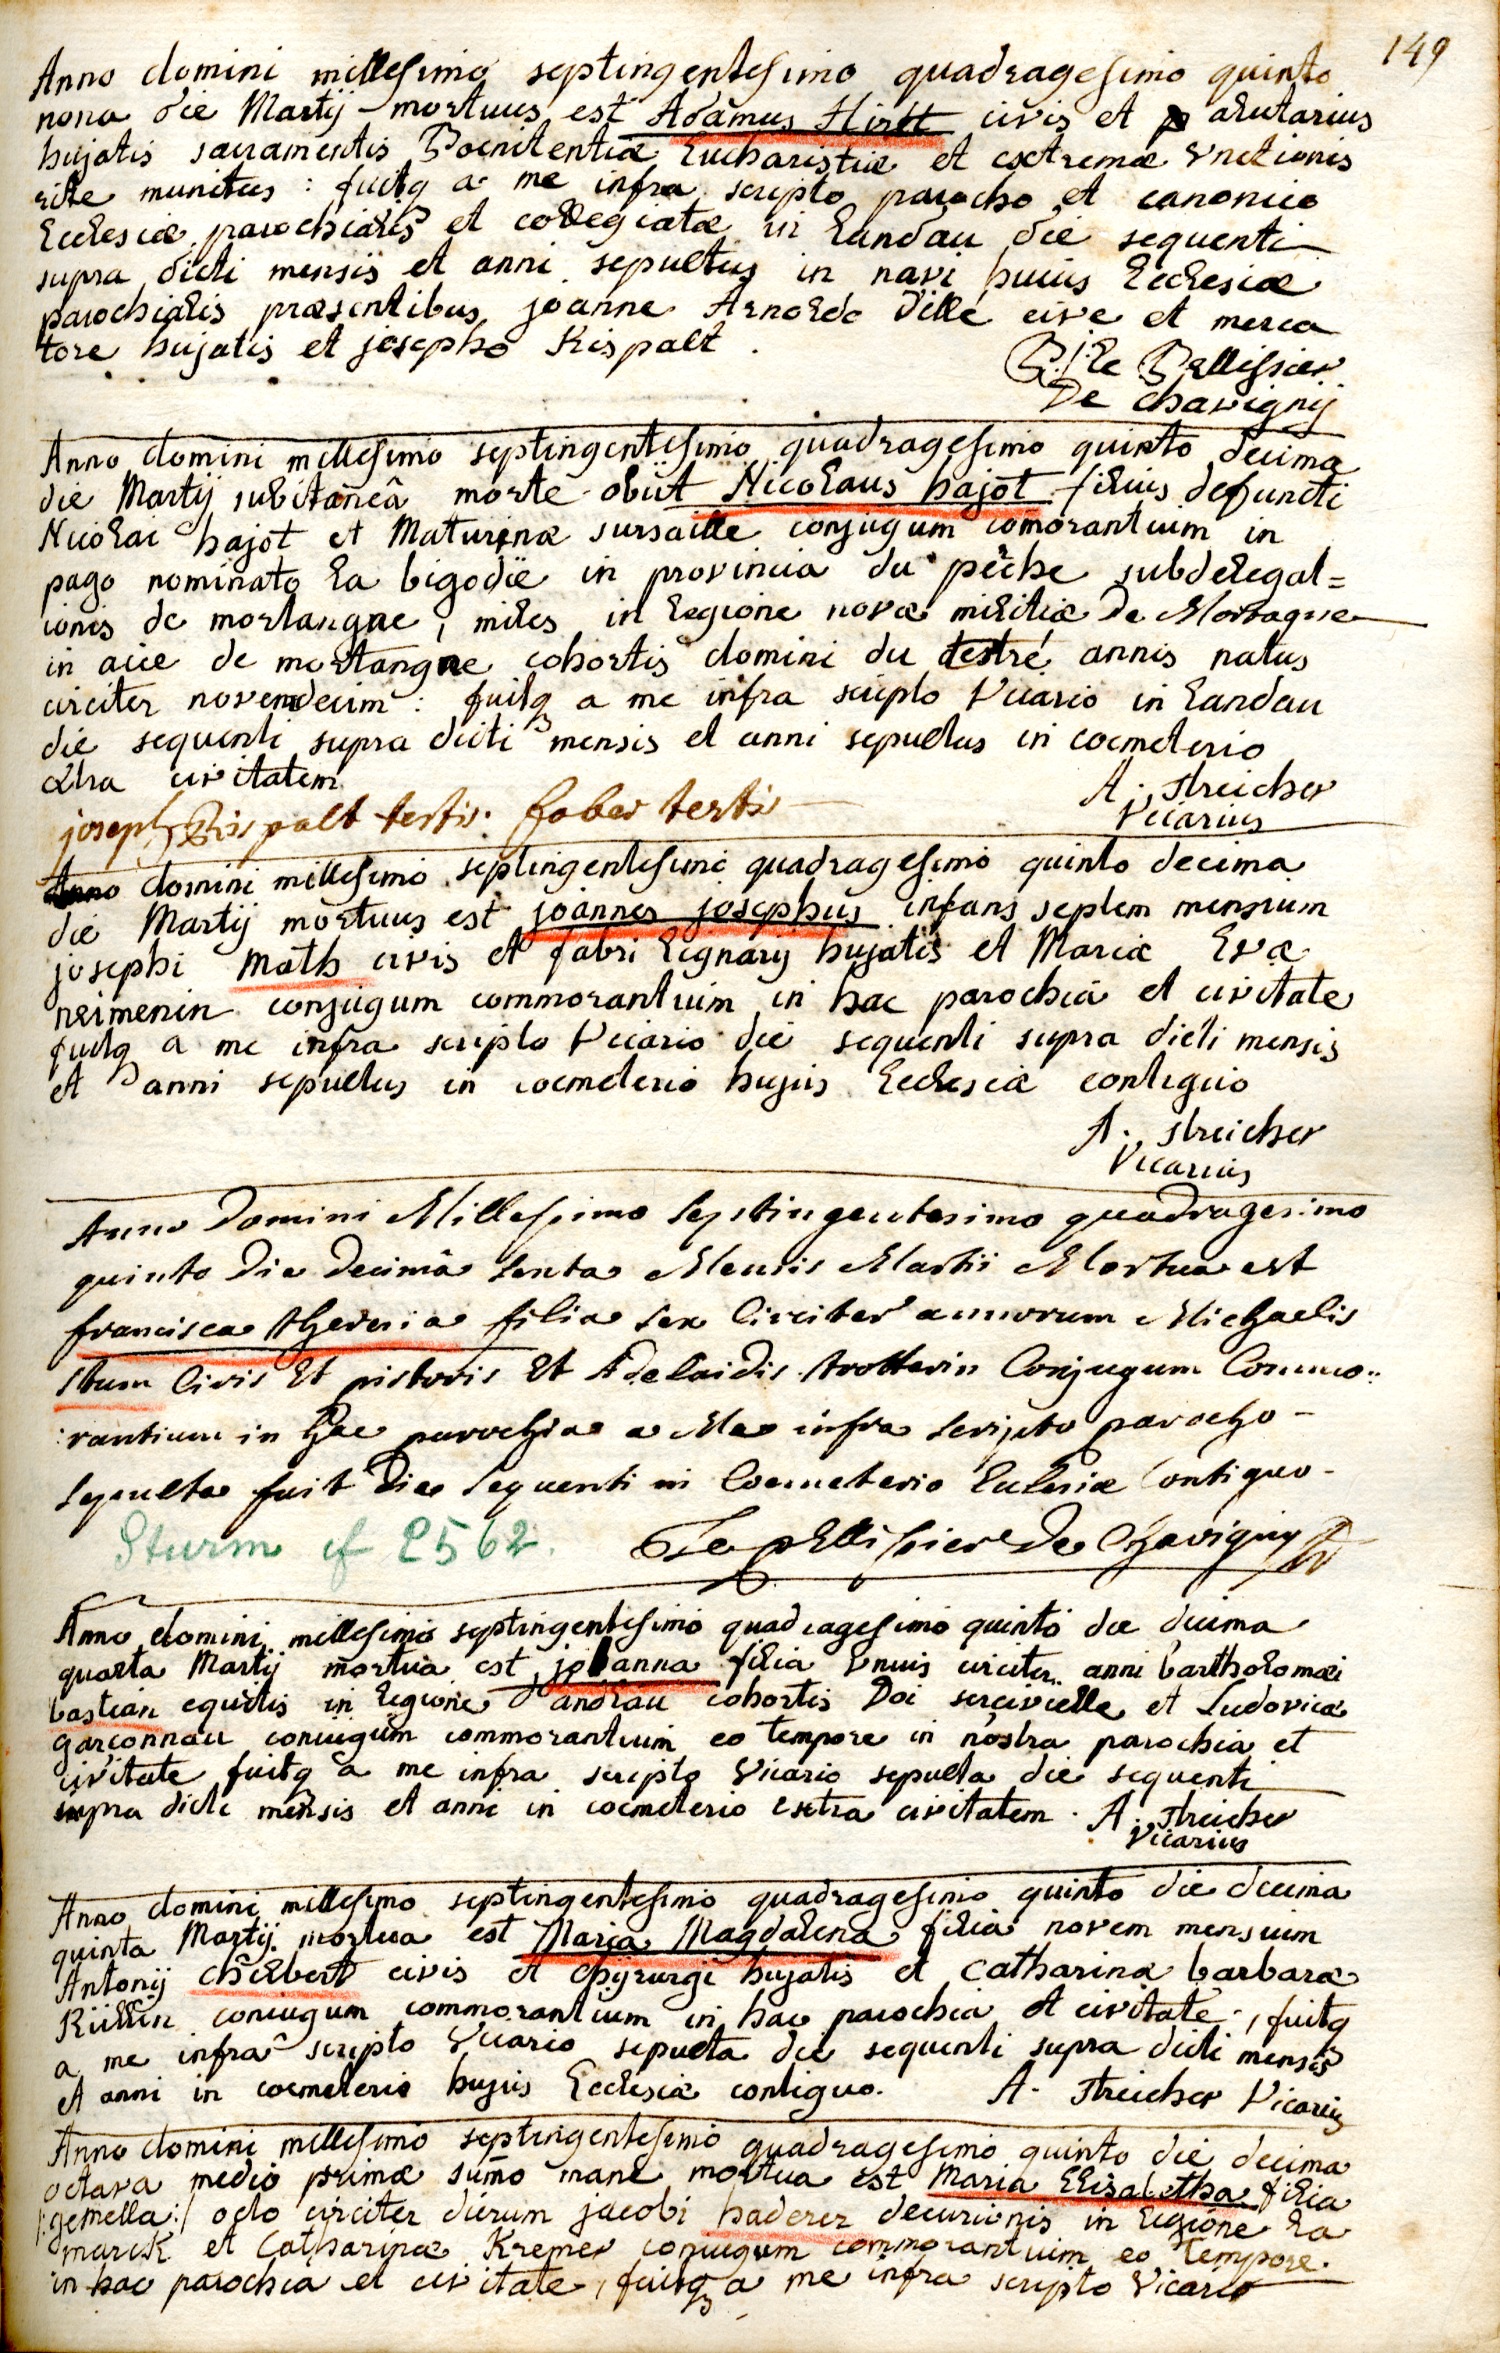 149
Anno domini millesimo septingentesimo quadragesimo quinto
nona die Martij mortuus est Adamus Hirtt civis et arutarius
hujatis sacramentis Poenitentiæ Eucharistiæ et extremæ Unctionis
rite munitus : fuitq a me infra scripto parocho et canonico
Ecclesiæ parochialis et collegiatæ in Landau die sequenti
supra dicti mensis et anni sepultus in navi huius Ecclesiæ
parochialis præsentibus joanne Arnoldo Dillé cive et merca
tore hujatis et josepho Rispalt .
Le Pellissier
De chavignij
Anno domini millesimo septingentesimo quadragesimo quinto decima
die Martij subitaneâ morte obiit Nicolaus hajot filius defuncti
Nicolai hajot et Maturinæ sursaille conjugum comorantium in
pago nominato la bigodie in provincia du pêche subdelegat=
ionis de mortangne, miles in legione novæ militiæ De Mortagne
in acie de mortangne cohortis domini du testré annis natus
circiter novemdecim : fuitq a me infra scripto Vicario in Landau
die sequenti supra dicti mensis et anni sepultus in coemeterio
extra civitatem
A. Streicher
Vicarius
joseph Rispalt testis. faber testis
Anno domini millesimo septingentesimo quadragesimo quinto decima
die Martij mortuus est joannes josephus infans septem mensium
josephi Math civis et fabri lignarij hujatis et Mariæ Evæ
neimenin conjugum commorantium in hac parochia et civitate
fuitq a me infra scripto Vicario die sequenti supra dicti mensis
et anni sepultus in coemeterio hujus Ecclesiæ contiguo
A. Streicher
Vicarius
Anno Domini Millesimo Septingentesimo quadragesimo
quinto Die Decimâ Sexta Mensis Martii Mortua est
francisca theresia filia sex Circiter annorum Michaelis
Stum Civis Et pistoris Et Adelaidis trotterin Conjugum Commo:
:rantium in hac parochia a Me infra scripto parocho -
Sepulta fuit Die Sequenti in Coemeterio Ecclesiæ Contiguo -
Sturm cf 2562.
Le pellissier De Chavigny
Anno domini millesimo septingentesimo quadragesimo quinto die decima
quarta Martij mortua est johanna filia Unius circiter anni bartholomæi
bastian equitis in legione d'andlau cohortis Doi sercivelle et Ludovicæ
garconnau coniugum commorantium eo tempore in nostra parochia et
civitate fuitq a me infra scripto Vicario sepulta die sequenti
supra dicti mensis et anni in coemeterio extra civitatem . A. Streicher
Vicarius
Anno domini millesimo septingentesimo quadragesimo quinto die decima
quinta Martij mortua est Maria Magdalena filia novem mensium
Antonij civis et chijrurgi hujatis et Catharinæ barbaræ
Küllin coniugum commorantium in hac parochia et civitate, fuitq
a me infra scripto Vicario sepulta die sequenti supra dicti mensis
et anni in coemeterio hujus Ecclesiæ contiguo. A. Streicher Vicarius
Anno domini millesimo septingentesimo quadragesimo quinto die decima
octava medio primæ summo mane mortua est Maria Elisabetha filia
/:gemella:/ octo circiter dierum jacobi haderer decurionis in legione la
marck et Catharinæ Kremer coniugum commorantium eo tempore.
in hac parochia et civitate, fuitq a me infra scripto Vicario